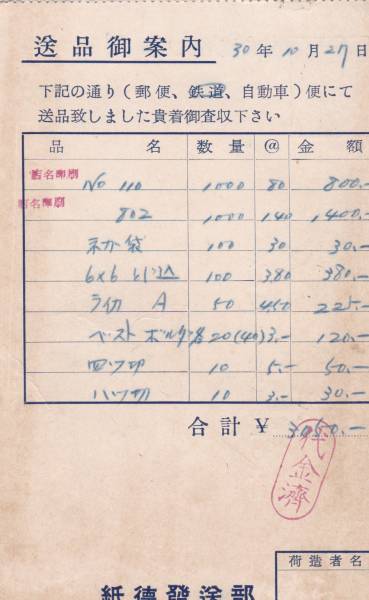 送品御案内 30年10月27日
下記の通り(郵便、鉄道、自動車)便にて
送品致しました貴着御査収下さい
品名 数量 @ 金額
店名印刷 No 110 1000 80 800.-
店名印刷 802 1000 140 1400.-
ネガ袋 100 30 30.-
6x6 100 3.80 380.-
ライカ A 50 4.50 225.-
ベスト 20(40) 3.- 120.-
四ツ切 10 5.- 50.-
八ツ切 10 3.- 30.-
合計 ¥ 3050.-
代金済
荷造者名
紙德發送部